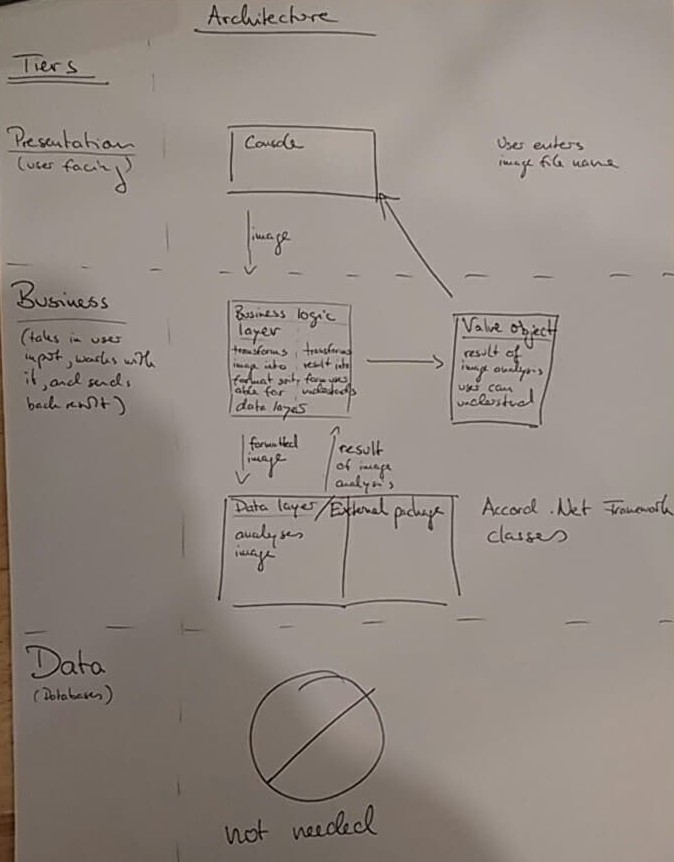 Architecture
Tiers
Presentation
(user facing)
Console
User enters
image file name
image
Business
(takes in user
input, works with
it, and sends
back result)
Business logic
layer
transforms
image into
format suitable for
data layer
transforms
result into
form user
understands
Value object
result of
image analysis
user can
understand
formatted
image
result
of image
analysis
Data layer / External package
analyses
image
Accord .Net Framework
classes
Data
(Databases)
not needed